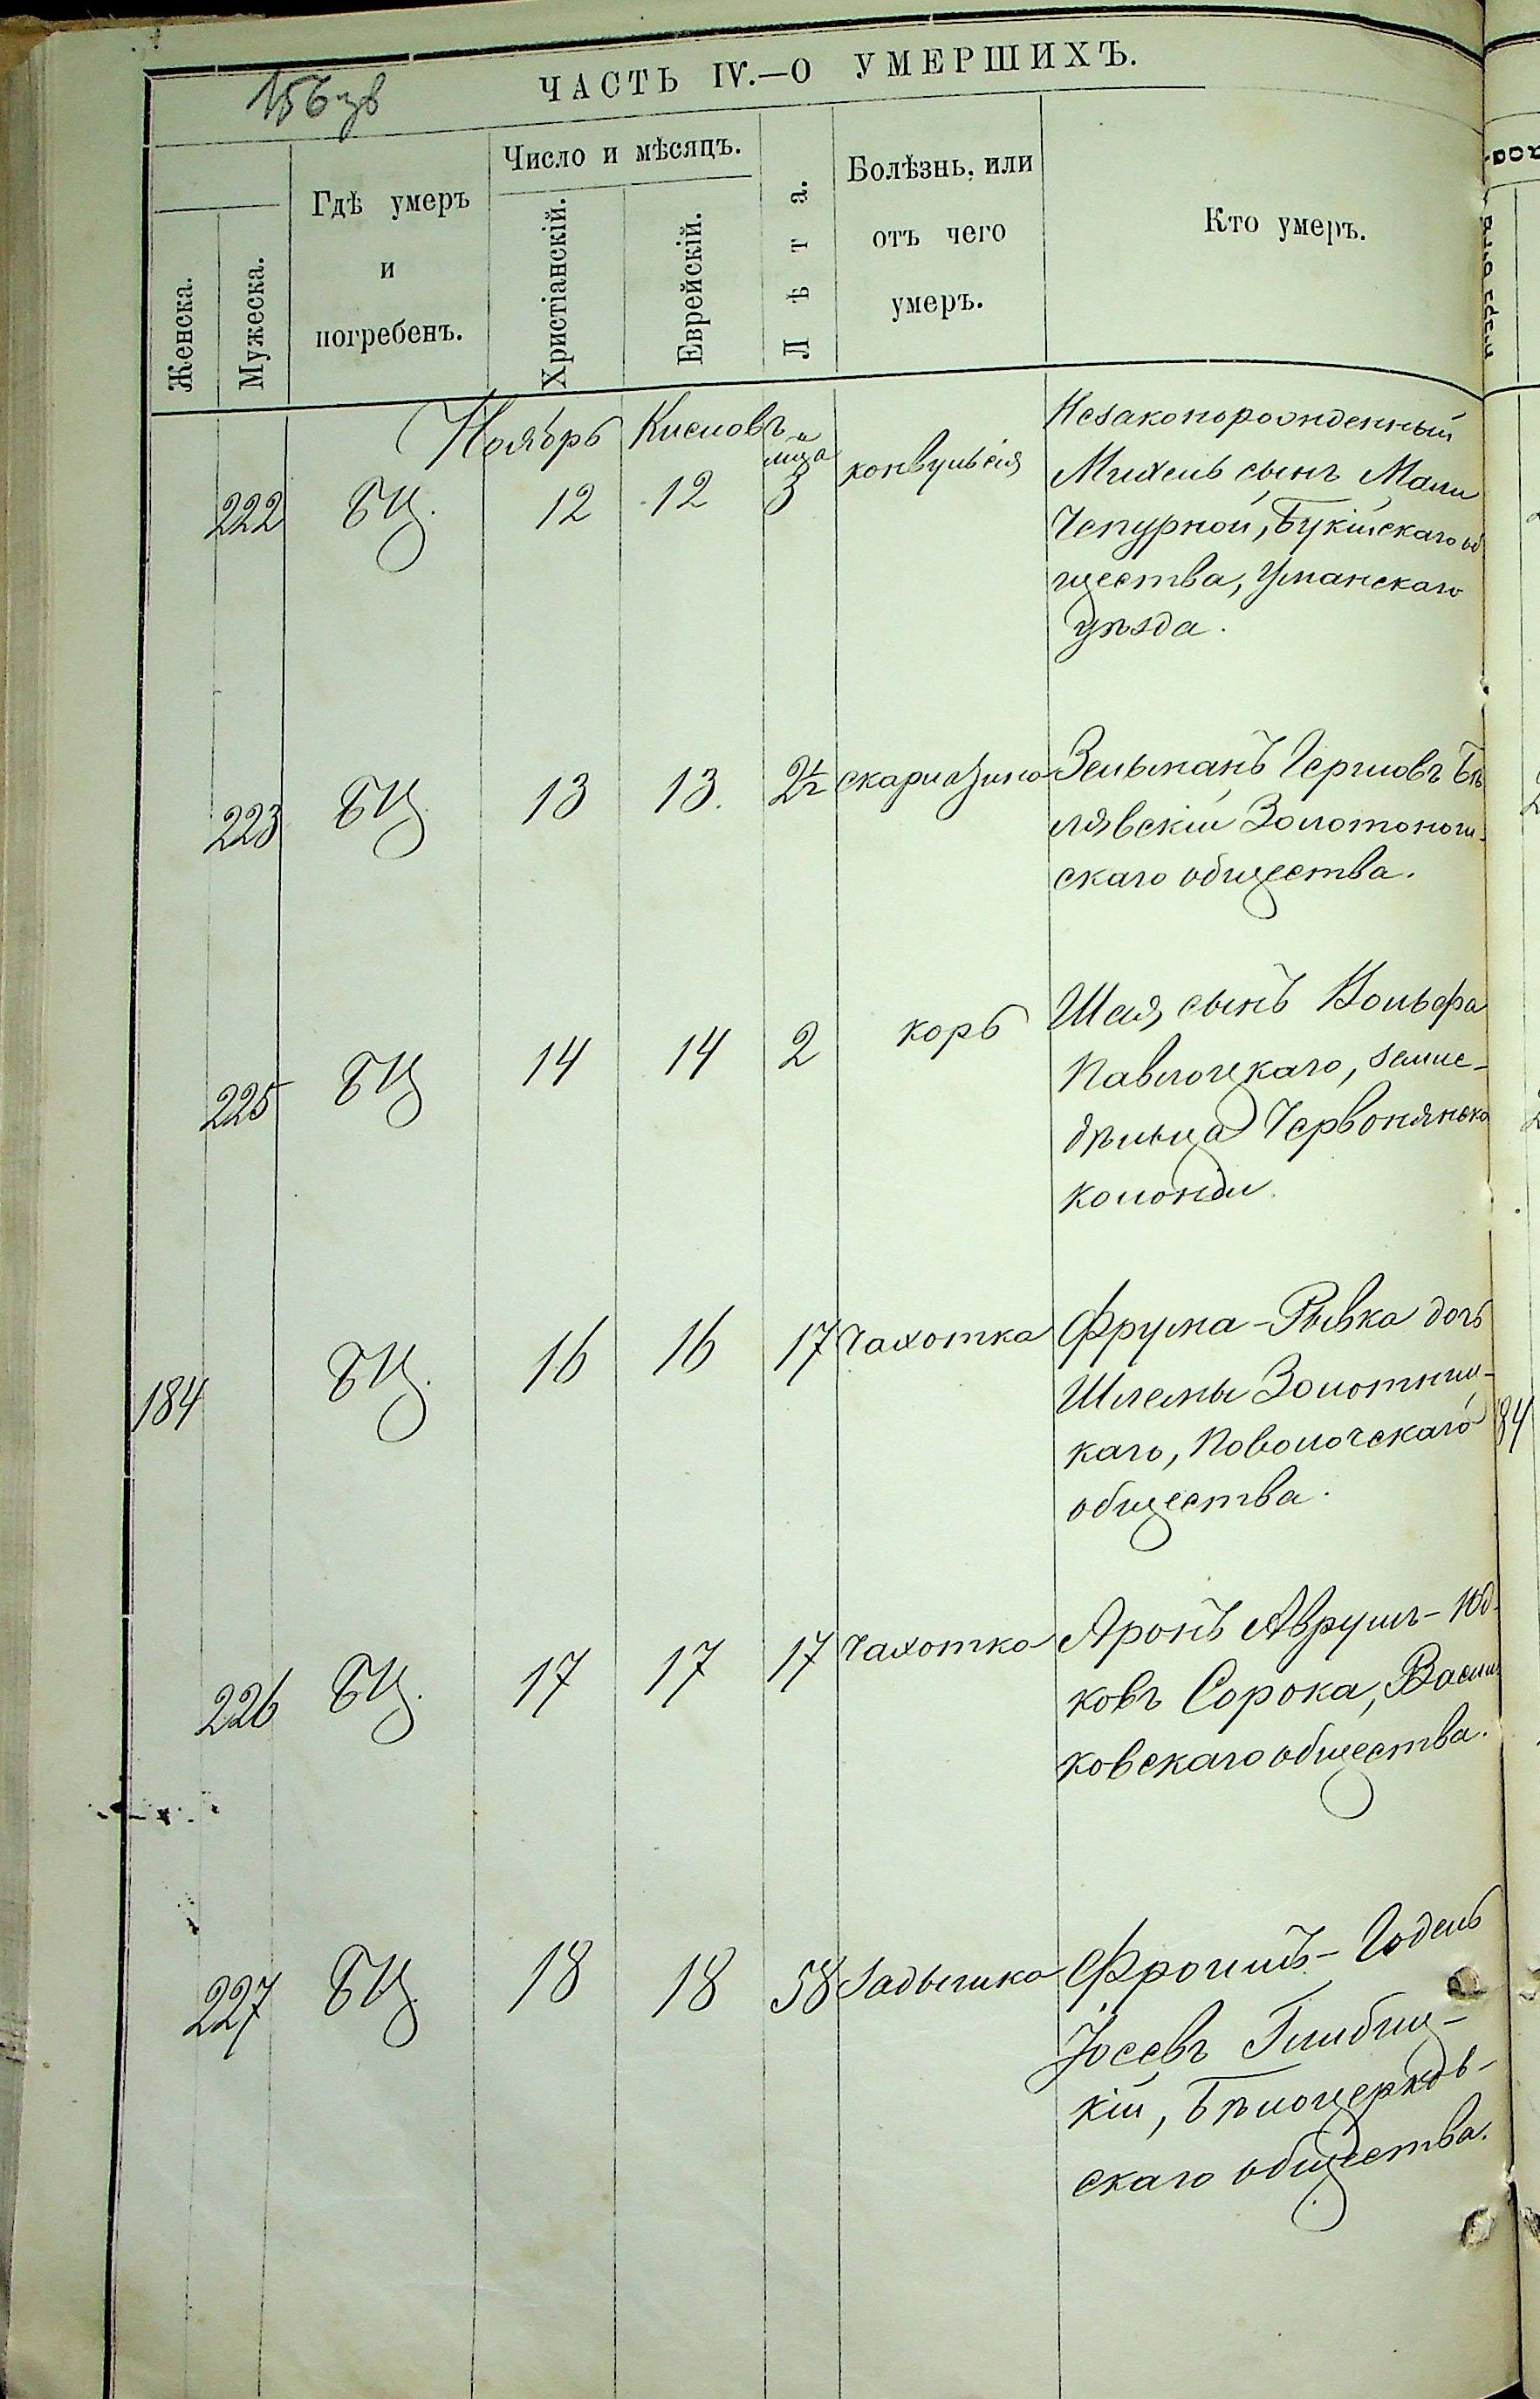 156 зв
ЧАСТЬ IV.—О УМЕРШИХЪ.
Женска.
Мужеска.
Гдѣ умеръ
и
погребенъ.
Число и мѣсяцъ.
Христіанскій.
Еврейскій.
Лѣта.
Болѣзнь, или
отъ чего
умеръ.
Кто умеръ.
Ноябрь Кислевъ
222 БЦ. 12 12 3 м-ца конвульсія
Незаконорожденный
Михель сынъ Мали
Чепурной, Букійскаго об
щества, Уманскаго
уѣзда.
223 БЦ 13 13. 2½ скарлатина
Зельманъ Гершовъ Бѣ
лявскій Золотонош-
скаго общества.
225 БЦ 14 14 2 корь
Шая, сынъ Вольфа
Паволоцкаго, земле-
дѣльца Червонянско
колоніи.
184 БЦ. 16 16 17 Чахотка
Фрума-Рывка дочь
Шлемы Золотниц-
каго, Паволочскаго
общества.
226 БЦ. 17 17 17 Чахотка
Аронъ Аврумъ-Юд-
ковъ Сорока, Василь
ковскаго общества.
227 БЦ. 18 18 58 Задышка
Фроимъ-Годель
Іосевъ Глибиц-
кій, Бѣлоцерков-
скаго общества.
84